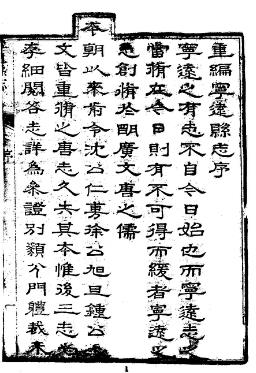 重編寧遠縣志序
寧遠之有志不自今日始也而寧遠志之
當脩在今日則有不可得而緩者寧遠之
志創脩於明廣文唐之儒
本朝以來前令沈公仁徐公旭旦鍾公人
文皆重脩之唐志久失其本惟後三志為
細閱各志詳為叅證別類分門體裁未